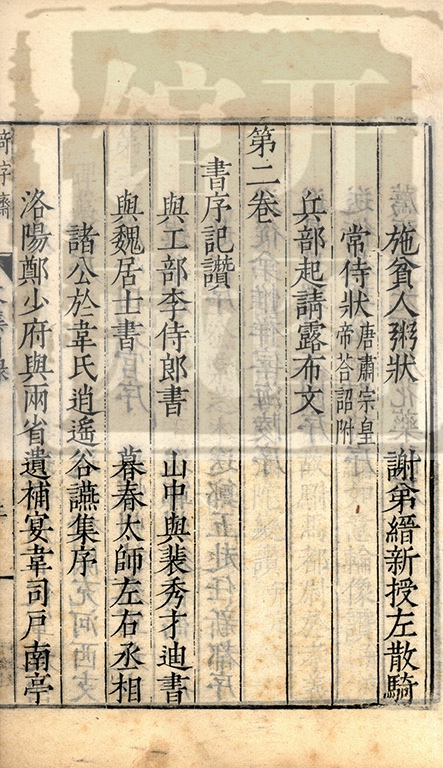 施貧人粥狀 謝弟縉新授左散騎
常侍狀 唐肅宗皇帝荅詔附
兵部起請露布文
第二卷
書序記讚
與工部李侍郎書 山中與裴秀才迪書
與魏居士書 暮春太師左右丞相
諸公於韋氏逍遙谷讌集序
洛陽鄭少府與兩省遺補宴韋司戶南亭